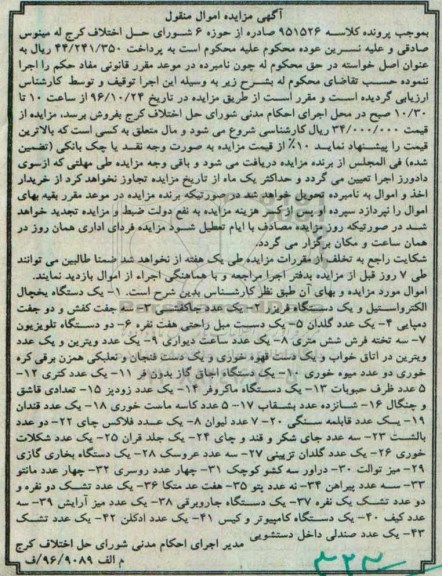 آگهی مزایده اموال منقول
بموجب پرونده کلاسه ۹۵۱۵۲۶ صادره از حوزه ۶ شورای حل اختلاف کرج له مینوس
صادقی و علیه نسرین عوده محکوم علیه محکوم است به پرداخت ۴۴/۲۴۱/۳۵۰ ریال به
عنوان اصل خواسته در حق محکوم له چون نامبرده در موعد مقرر قانونی مفاد حکم را اجرا
ننموده حسب تقاضای محکوم له بشرح زیر به وسیله این اجرا توقیف و توسط کارشناس
ارزیابی گردیده است و مقرر است از طریق مزایده در تاریخ ۹۶/۱۰/۲۴ از ساعت ۱۰ تا
۱۰/۳۰ صبح در محل اجرای احکام مدنی شورای حل اختلاف کرج بفروش برسد، مزایده از
قیمت ۳۴/۰۰۰/۰۰۰ ریال کارشناسی شروع می شود و مال متعلق به کسی است که بالاترین
قیمت را پیشنهاد نماید ۱۰٪ از قیمت مزایده به صورت وجه نقد یا چک بانکی (تضمین
شده) فی المجلس از برنده مزایده دریافت می شود و باقی وجه مزایده طی مهلتی که ازسوی
دادورز اجرا تعیین می گردد و حداکثر یک ماه از تاریخ مزایده تجاوز نخواهد کرد از خریدار
اخذ و اموال به نامبرده تحویل خواهد شد درصورتیکه برنده مزایده در موعد مقرر بقیه بهای
اموال را نپردازد سپرده او پس از کسر هزینه مزایده به نفع دولت ضبط و مزایده تجدید خواهد
شد در صورتیکه روز مزایده مصادف با ایام تعطیل شود مزایده فردای اداری همان روز در
همان ساعت و مکان برگزار می گردد.
شکایت راجع به تخلف از مقررات مزایده طی یک هفته از نخواهد شد ضمنا طالبین می توانند
طی ۷ روز قبل از مزایده بدفتر اجرا مراجعه و با هماهنگی اجراء از اموال بازدید نمایند.
اموال مورد مزایده و بهای آن طبق نظر کارشناس بدین شرح است. ۱- یک دستگاه یخچال
الکترواستیل و یک دستگاه فریزر ۲- یک عدد جاکفشی ۳- سه جفت کفش و دو جفت
دمپایی ۴- یک عدد گلدان ۵- یک دست مبل راحتی هفت نفره ۶- دو دستگاه تلویزیون
۷- سه تخته فرش شش متری ۸- یک عدد ساعت دیواری ۹- یک عدد ویترین و یک عدد
ویترین در اتاق خواب و یک دست قهوه خوری و یک دست فنجان و نعلبکی همزن برقی کره
خوری دو عدد میوه خوری ۱۰- یک دستگاه اجاق گاز بدون فر ۱۱- یک عدد کتری ۱۲-
۵ عدد ظرف حبوبات ۱۳- یک دستگاه ماکروفر ۱۴- یک عدد زودپز ۱۵- تعدادی قاشق
و چنگال ۱۶- شانزده عدد بشقاب ۱۷- ۵ عدد کاسه ماست خوری ۱۸- یک عدد قندان
۱۹- یک عدد قابلمه سنگی ۲۰- ۷ عدد لیوان ۸- یک عدد فلاکس چای ۲۲- دو عدد
بالشت ۲۳- سه عدد جای شکر و قند و چای ۲۴- یک جلد قران ۲۵- یک عدد شکلات
خوری ۲۶- یک عدد گلدان تزیینی ۲۷- سه عدد عروسک ۲۸- یک دستگاه بخاری گازی
۲۹- میز توالت ۳۰- دراور سه کشو کوچک ۳۱- چهار عدد روسری ۳۲- چهار عدد مانتو
۳۳- سه عدد پیراهن ۳۴- نه عدد پتو ۳۵- هفت عدد متکا ۳۶- یک عدد تشک دو نفره و
دو عدد تشک یک نفره ۳۷- یک دستگاه جاروبرقی ۳۸- یک عدد میز آرایش ۳۹- سه
عدد کیف ۴۰- یک دستگاه کامپیوتر و کیس ۴۱- یک عدد ادکلن ۴۲- یک عدد تشک
۴۳- یک عدد صندلی داخل دستشویی
مدیر اجرای احکام مدنی شورای حل اختلاف کرج
م الف ۹۶/۹۰۸۹/ف